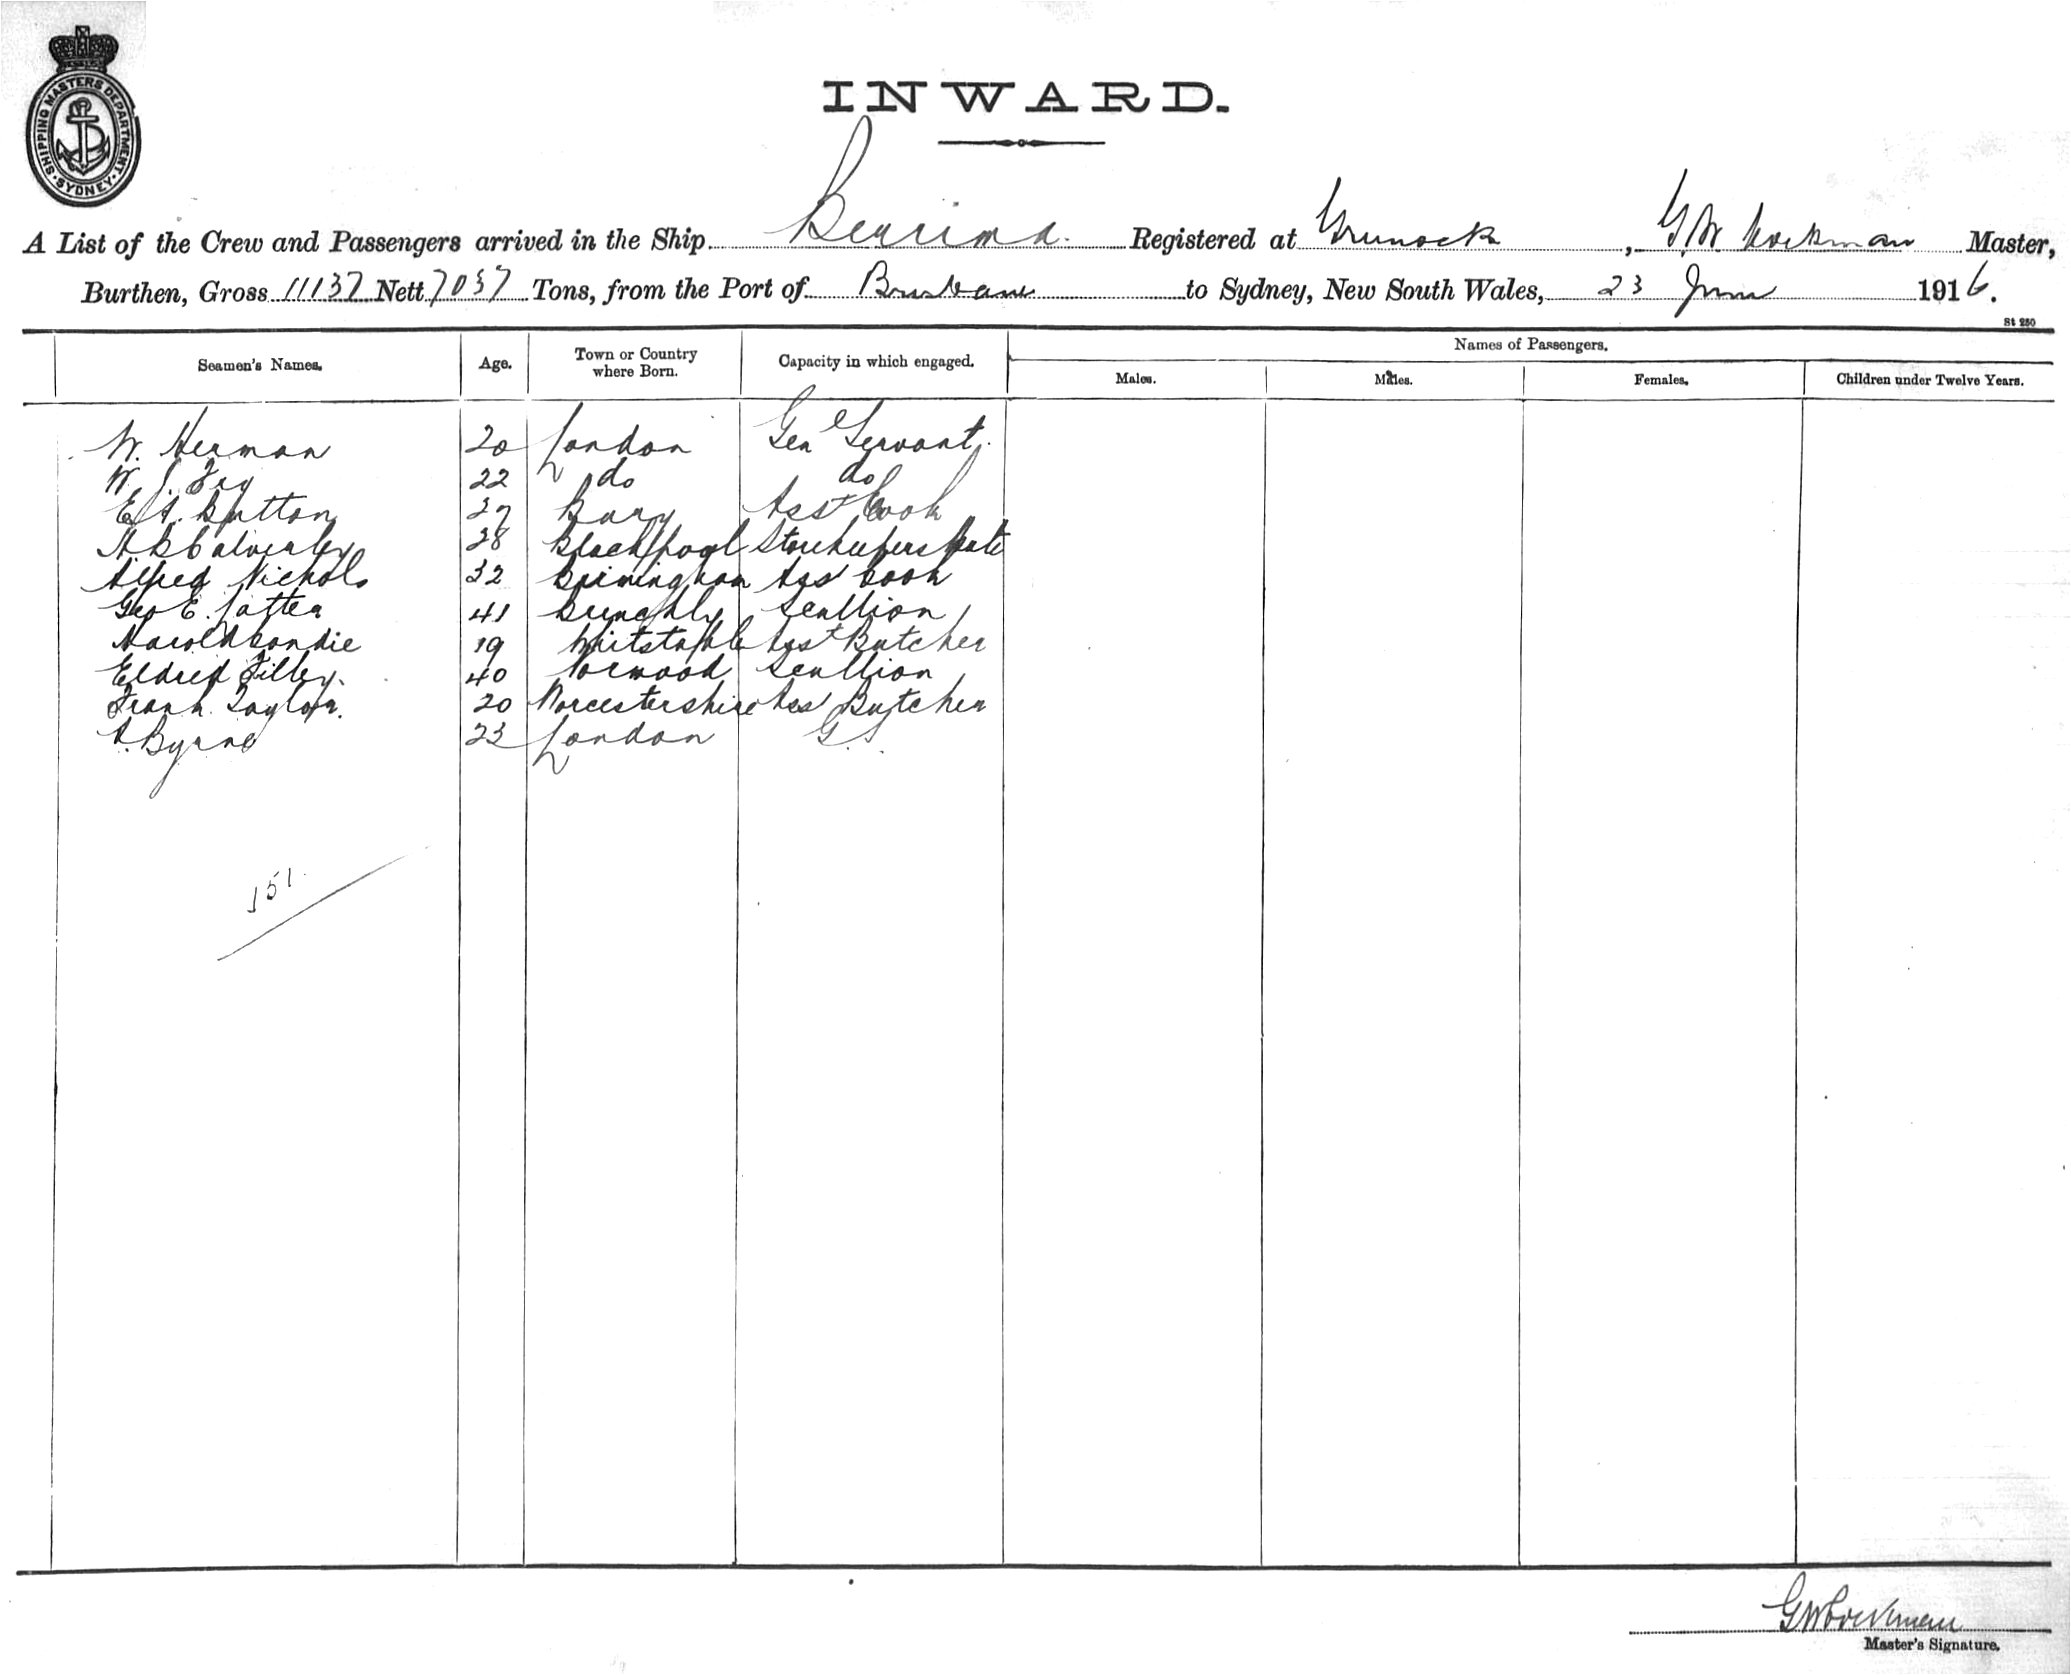 SHIPPING MASTERS DEPARTMENT. SYDNEY.
INWARD.
A List of the Crew and Passengers arrived in the Ship Beurima Registered at Grunock, G. W. Cockman Master,
Burthen, Gross 11137 Nett 7037 Tons, from the Port of Brisbane to Sydney, New South Wales, 23 June 1916.
St 280
Seamen's Names. Age. Town or Country where Born. Capacity in which engaged. Names of Passengers.
Males. Males. Females. Children under Twelve Years.
W. Herman 20 London Gen Servant.
W. J. Fry 22 do do
E. A. Button 27 Bury Asst Cook
A B Calverley 28 Blackpool Storekeepers Mate
Alfred Nichols 32 Birmingham Ass Cook
Geo E. 41 Scullion
Harold Condie 19 Whitstable Asst Butcher
Eldred Filley. 40 Norwood Scullion
Frank Taylor. 20 Worcestershire Ass Butcher
Byrne 23 London G. S.
151.
G W Cockman
Master's Signature.